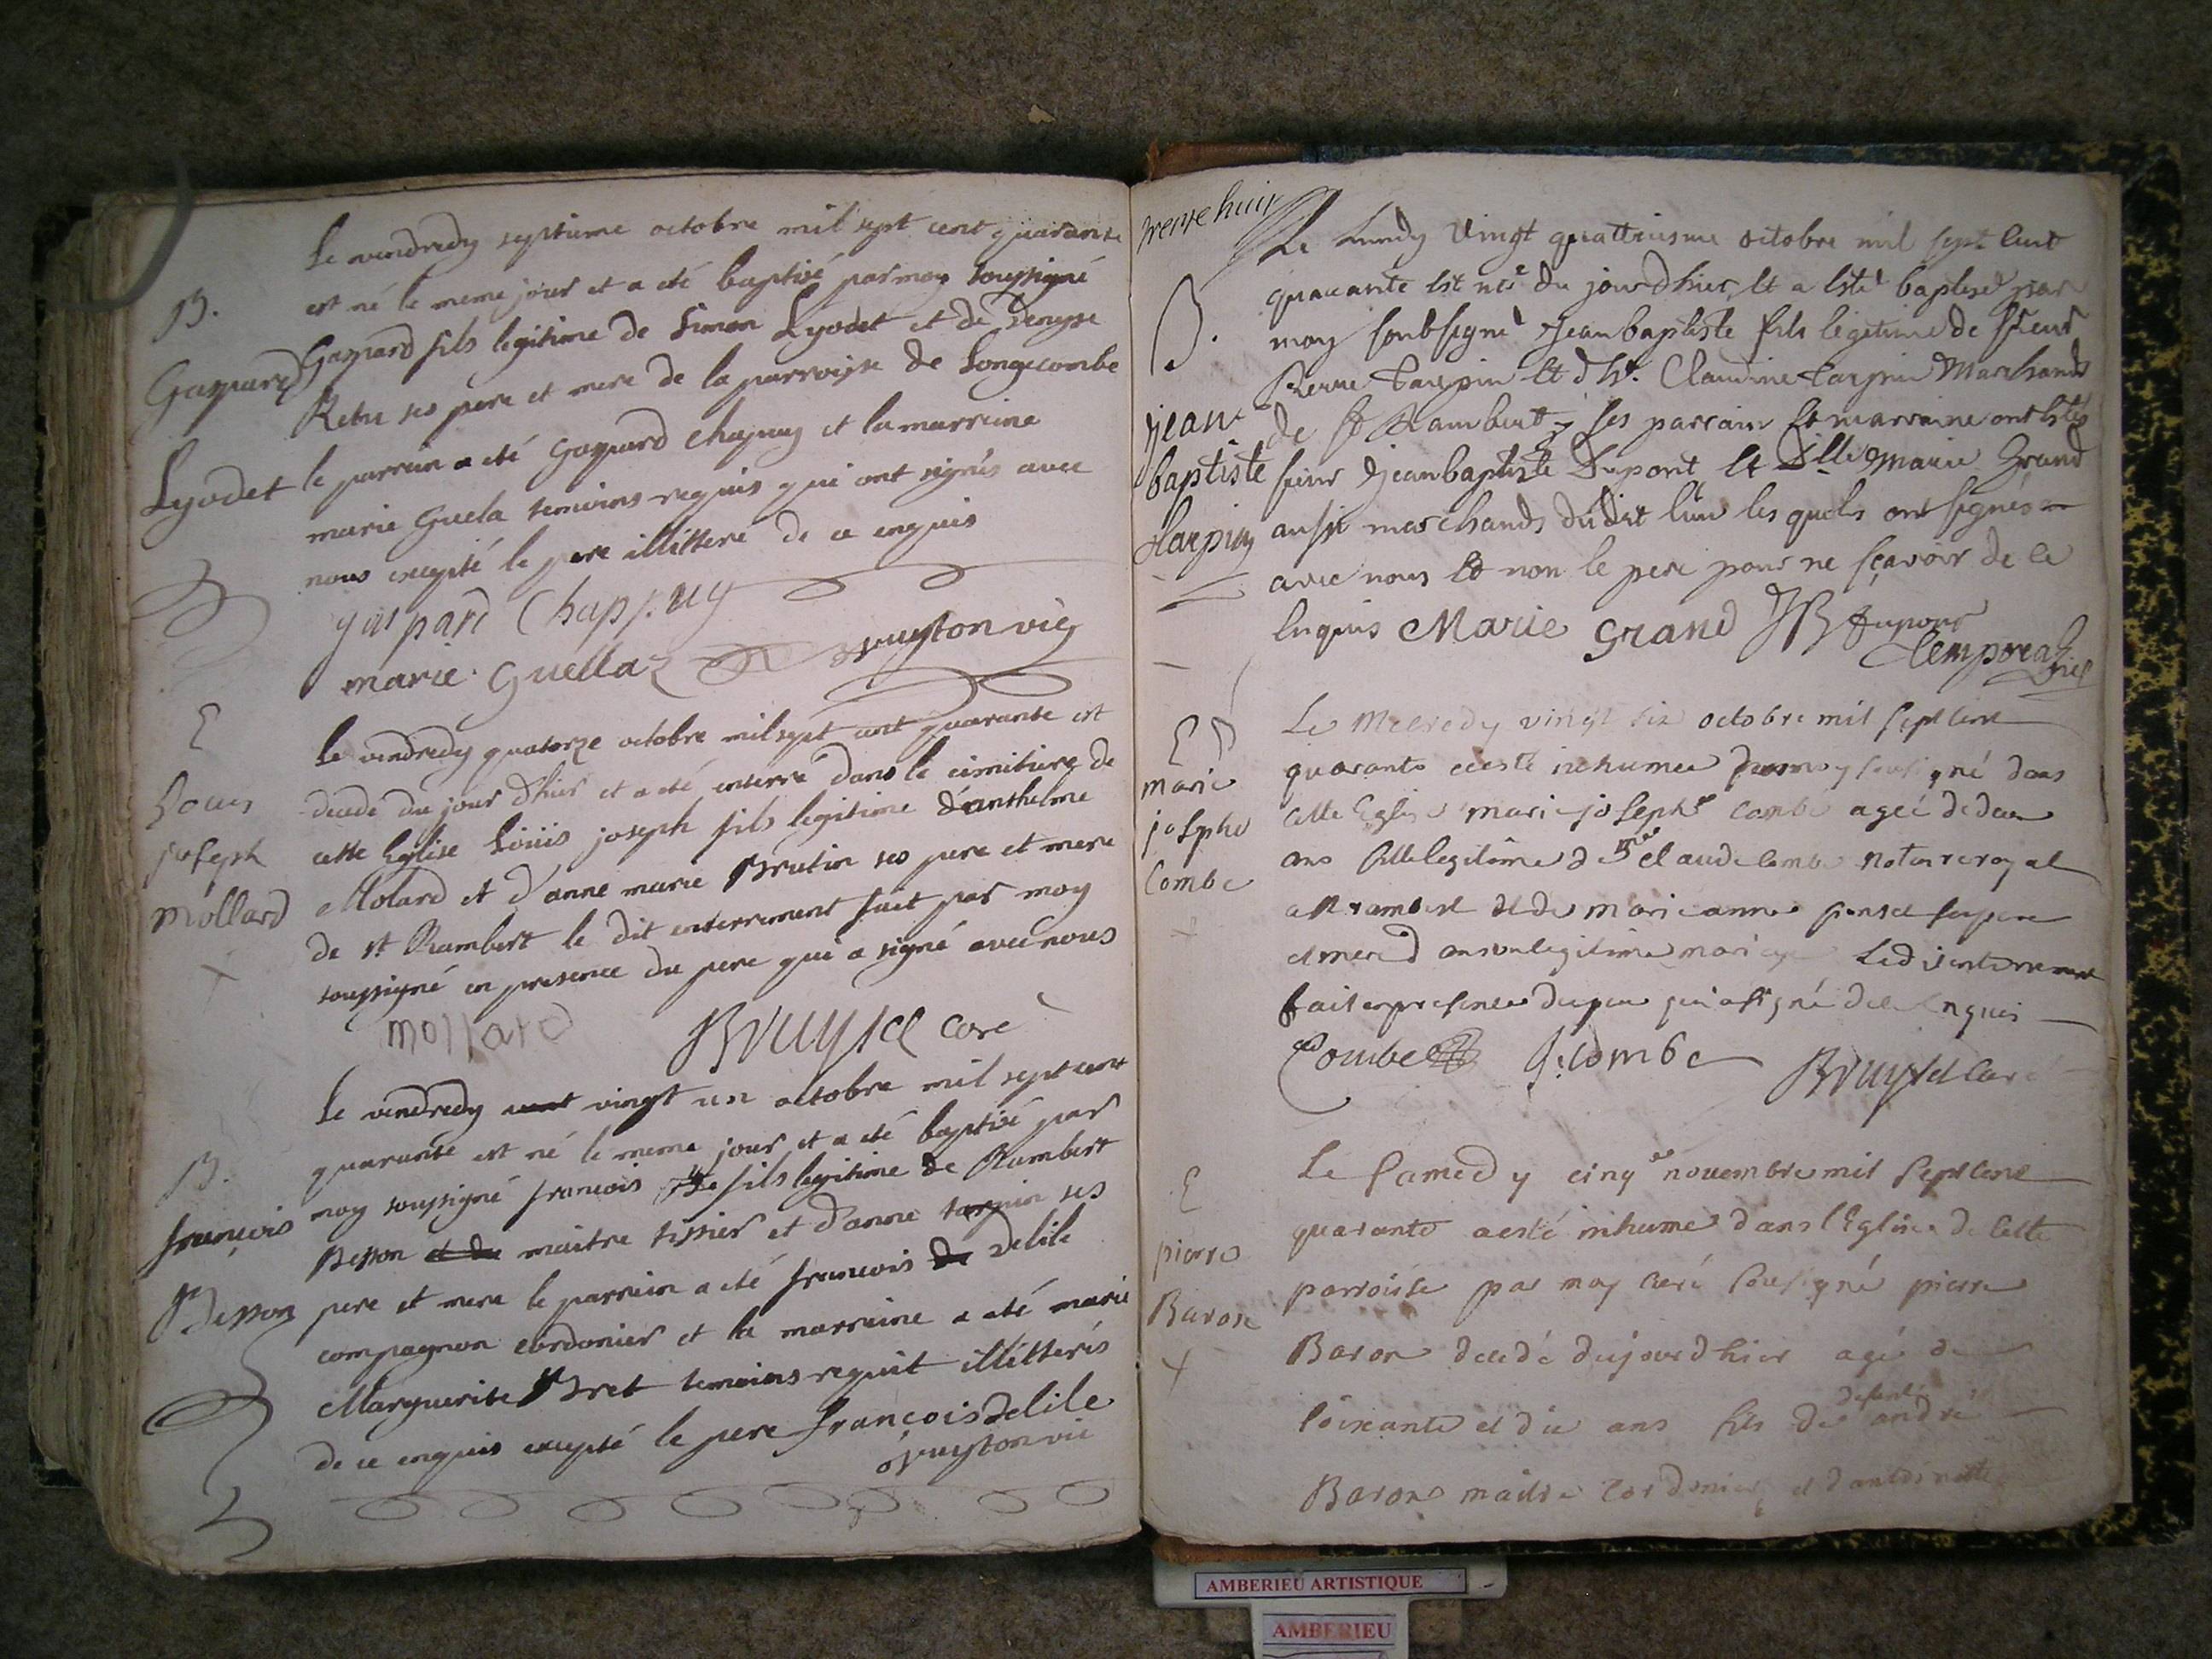 Le vendredy septieme octobre mil sept cent quarante
B.
est né le meme jour et a eté baptisé par moy soussigné
Gaspard
Gaspard fils legitime de Simon Lyodet et de Denyse
Retru ses pere et mere de la parroisse de Longecombe
Lyodet
le parrein a eté Gaspard Chapuy et la marreine
marie Guela temoins requis qui ont signés avec
nous excepté le pere illitteré de ce enquis
gaspard Chappuy
marie Guellaz
vuyton vic
E
Le vendredy quatorze octobre mil sept cent quarante est
Louis
decede du jour d'hier et a eté enterré dans le cimitiere de
joseph
cette Eglise Loüis joseph fils legitime d'anthelme
mollard
Molard et d'anne marie Brutin ses pere et mere
de st Rambert le dit enterrement fait par moy
soussigné en presence du pere qui a signé avec nous
mollard
Bruyset Curé
Le vendredy vingt un octobre mil sept cent
B.
quarante est né le meme jour et a eté baptisé par
françois
moy soussigné francois fils legitime de Rambert
Besson
Besson et de maitre tissier et d'anne tarpin ses
pere et mere le parrein a eté francois de Delile
compagnon cordonier et la marreine a eté marie
Marguerite Bret temoins requit illitterés
de ce enquis excepté le pere françois delile
vuyton vic
trente huit
Le Lundy Vingt quattriesme octobre mil sept Cent
B.
quarante Est né du jour dhier Et a Esté baptisé par
moy soubsigné Jean baptiste fils legitime de sieur
Pierre Tarpin Et d'h. Claudine Tarpin Marchands
jean
de St Rambert, ses parrain Et marraine ont Esté
baptiste
sieur Jean baptiste Dupont Et Dlle Marie Grand
Tarpin
aussi marchands dudit lieu les quels ont signés
avec nous Et non le pere pour ne sçavoir de ce
Enquis Marie Grand JB Dupont
Temporal vic
E
Le Mecredy vingt six octobre mil sept cent
marie
quarante a esté inhumee par moy sousigné dans
josephe
cette Eglise marie josephe Combe agée de deux
Combe
ans fille legitime de Sr Claude Combe Notaire royal
a St rambert et de marie anne ses pere
et mere en legitime mariage Ledit enterrement
fait en presence du pere qui a signé de ce enquis
Combe
J: Combe
Bruyset Curé
E
Le Samedy cinq novembre mil sept cent
pierre
quarante a esté inhumé dans l'Eglise de cette
Baron
parroisse par moy curé sousigné pierre
Baron decedé du jour d hier agé de
soixante et dix ans fils de defunt andré
Baron maitre Cordonier et d'antoinette
AMBERIEU ARTISTIQUE
AMBERIEU